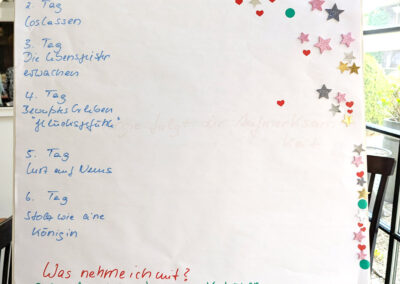 2. Tag
Loslassen
3. Tag
Die Lebensgeister
erwachen
4. Tag
Bewußtes Erleben
"Glücksgefühle"
5. Tag
Lust auf Neues
6. Tag
Stolz wie eine
Königin
Was nehme ich mit?